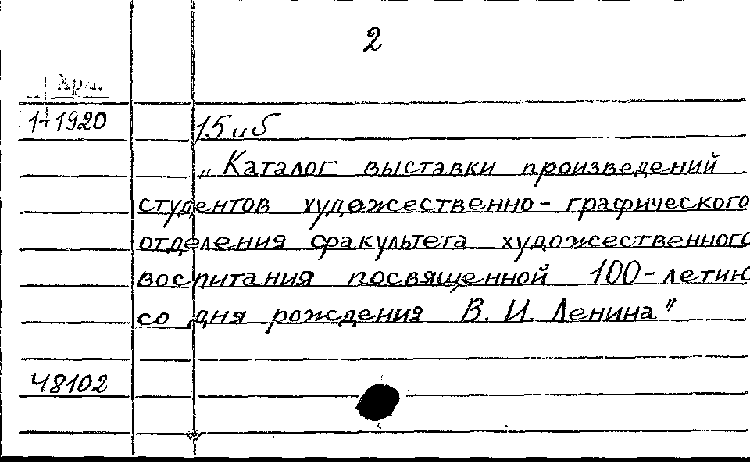 2
Хран.
1-1920
15 иб
„Каталог выставки произведений
студентов художественно-графического
отделения факультета художественного
воспитания посвященной 100-летию
со дня рождения В. И. Ленина"
48102